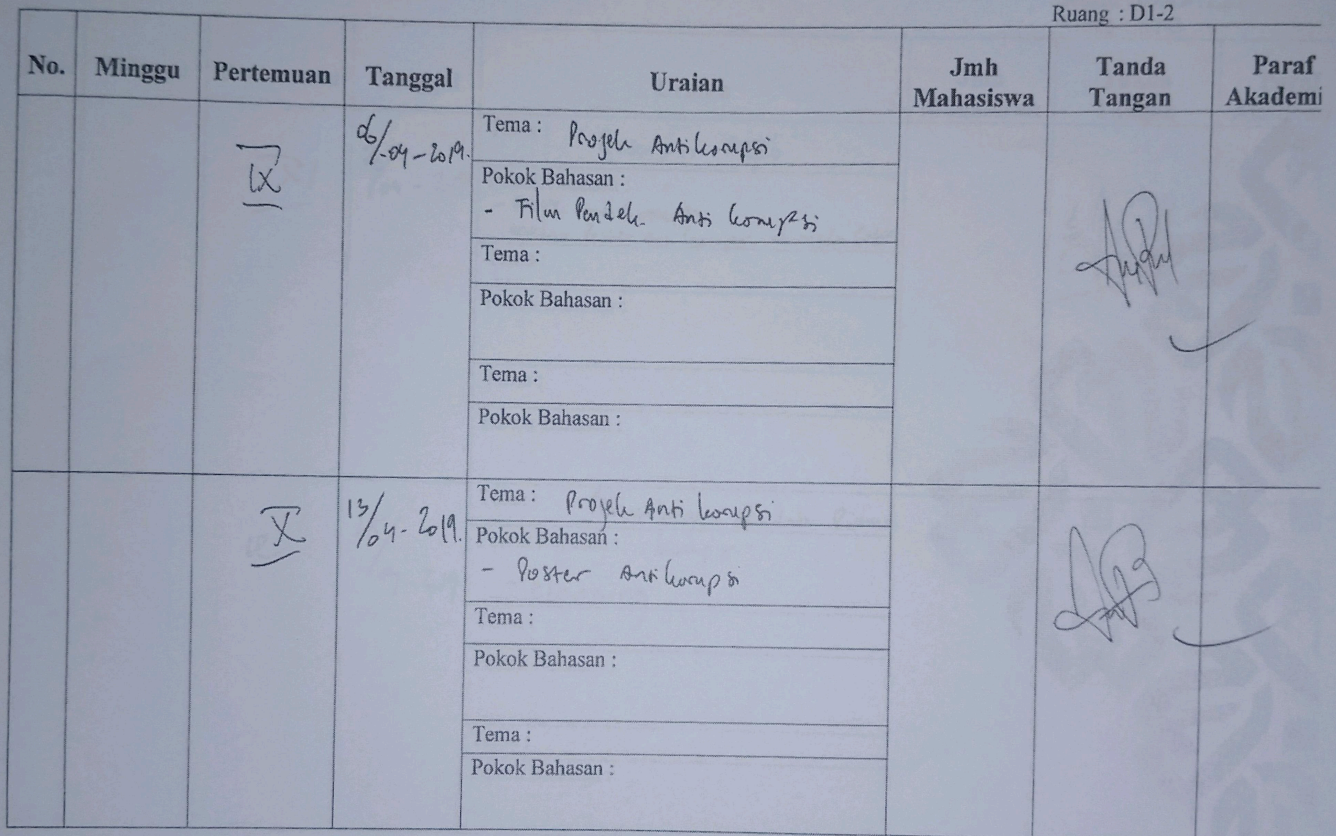 Ruang : D1-2
No. Minggu Pertemuan Tanggal Uraian Jmh Mahasiswa Tanda Tangan Paraf Akademi
IX 06/-04-2019. Tema : Projek Antikorupsi
Pokok Bahasan :
- Film Pendek Anti korupsi
Tema :
Pokok Bahasan :
Tema :
Pokok Bahasan :
X 13/04-2019. Tema : Projek Anti korupsi
Pokok Bahasan :
- Poster Antikorupsi
Tema :
Pokok Bahasan :
Tema :
Pokok Bahasan :